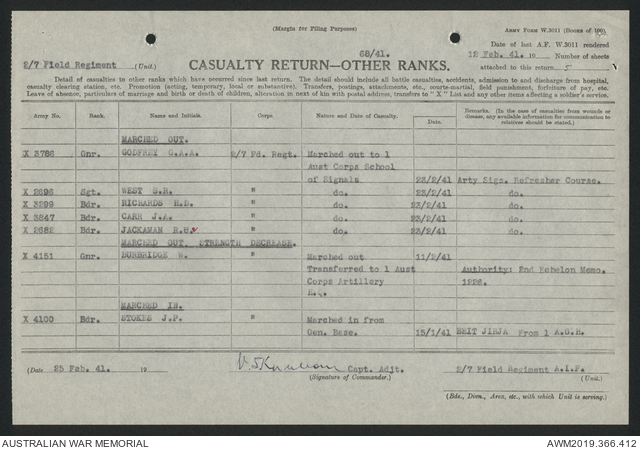 (Margin for Filing Purposes)
ARMY FORM W.3011 (BOOKS OF 100).
68/41.
Date of last A.F. W.3011 rendered
2/7 Field Regiment (Unit.)
CASUALTY RETURN—OTHER RANKS.
12 Feb. 41. 19 Number of sheets
attached to this return 5
Detail of casualties to other ranks which have occurred since last return. The detail should include all battle casualties, accidents, admission to and discharge from hospital,
casualty clearing station, etc. Promotion (acting, temporary, local or substantive). Transfers, postings, attachments, etc., court-martial, field punishment, forfeiture of pay, etc.
Leave of absence, particulars of marriage and birth or death of children, alteration in next of kin with postal address, transfers to "X" List and any other items affecting a soldier's service.
Army No. Rank. Name and Initials. Corps. Nature and Date of Casualty. Remarks. (In the case of casualties from wounds or
disease, any available information for communication to
relatives should be stated.)
Date.
MARCHED OUT.
X 3786 Gnr. GODFREY G.A.A. 2/7 Fd. Regt. Marched out to 1
Aust Corps School
of Signals 23/2/41 Arty Sigs. Refresher Course.
X 2696 Sgt. WEST S.R. " do. 23/2/41 do.
X 3299 Bdr. RICHARDS H.D. " do. 23/2/41 do.
X 3847 Bdr. CARR J.A. " do. 23/2/41 do.
X 2682 Bdr. JACKAMAN R.H. " do. 23/2/41 do.
MARCHED OUT. STRENGTH DECREASE.
X 4151 Gnr. BURBRIDGE W. " Marched out 11/2/41
Transferred to 1 Aust Authority: 2nd Echelon Memo.
Corps Artillery 1226.
H.Q.
MARCHED IN.
X 4100 Bdr. STOKES J.P. " Marched in from
Gen. Base. 15/1/41 BEIT JIRJA From 1 A.G.H.
(Date 25 Feb. 41. 19 Capt. Adjt. 2/7 Field Regiment A.I.F.
(Signature of Commander.) (Unit.)
(Bde., Divn., Area, etc., with which Unit is serving.)
AUSTRALIAN WAR MEMORIAL
AWM2019.366.412